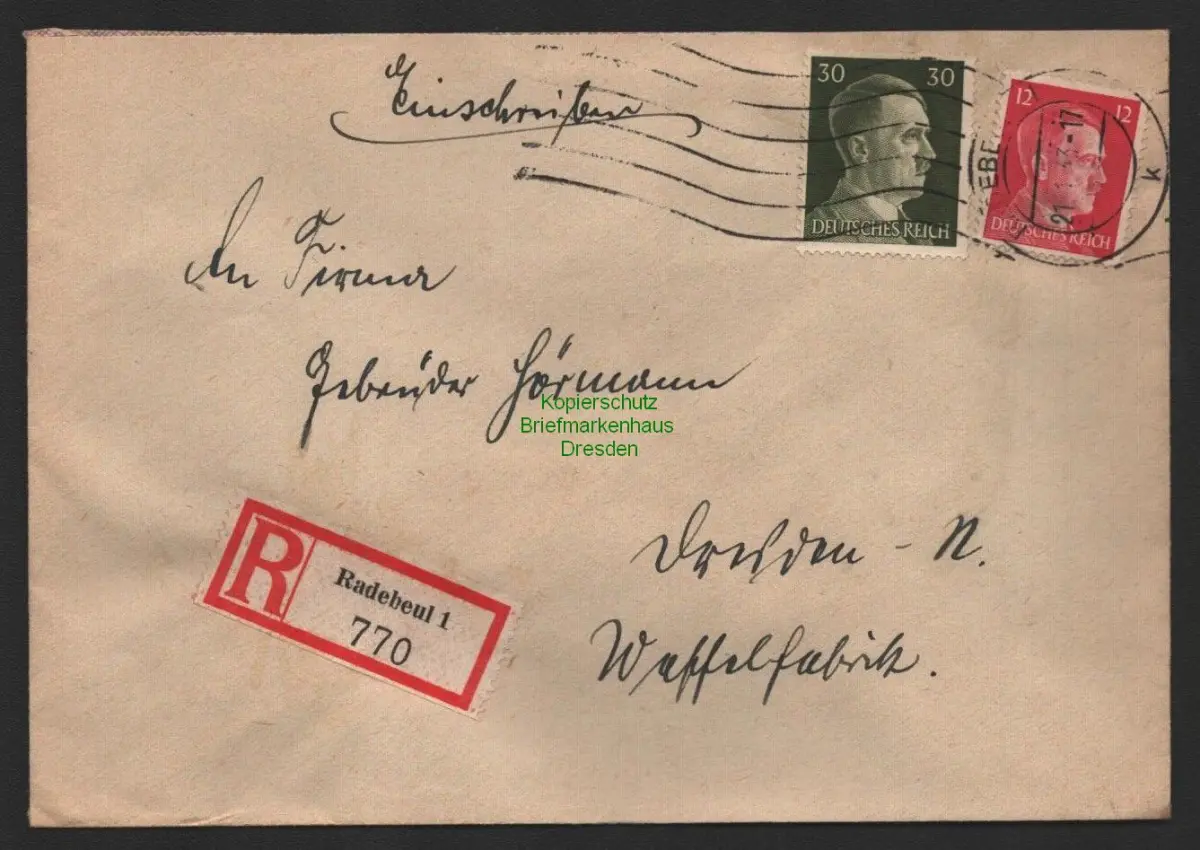 Einschreiben
30 30
DEUTSCHES REICH
12 12
DEUTSCHES REICH
21. 1. 43-17
k
An Firma
Gebrüder Hörmann
Kopierschutz
Briefmarkenhaus
Dresden
Dresden - N.
Waffelfabrik.
R
Radebeul 1
770